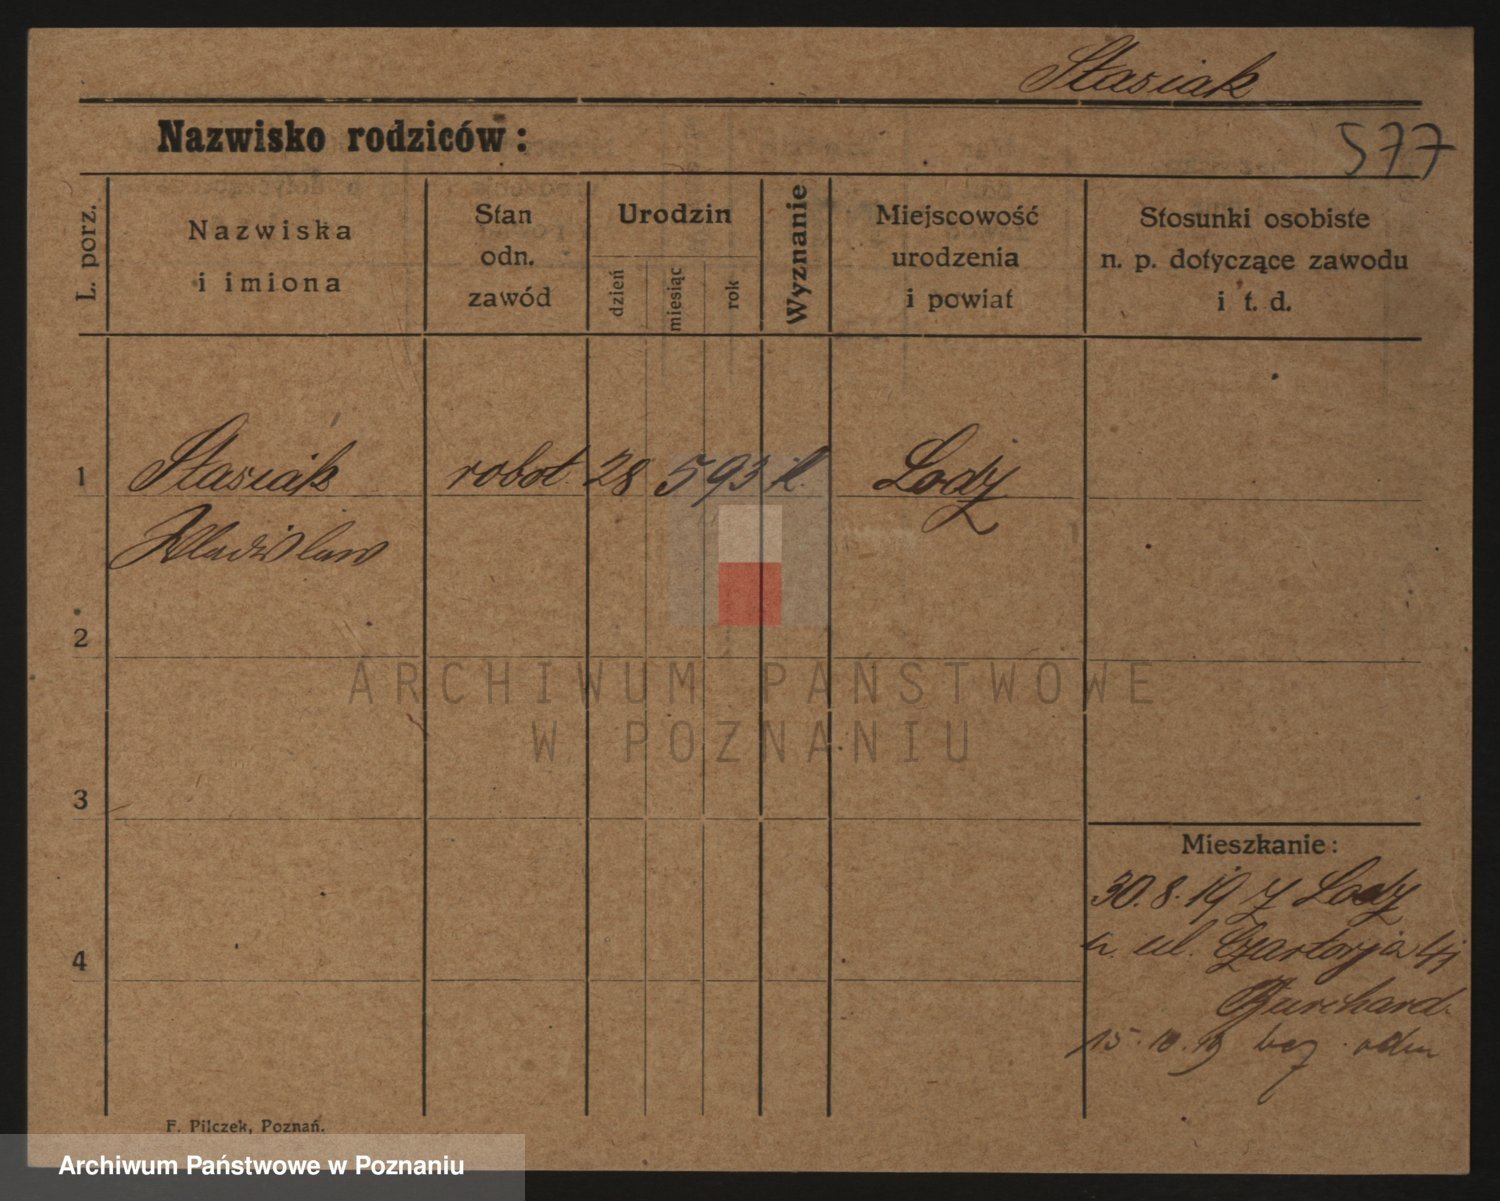 Stasiak
Nazwisko rodziców:
577
L. porz.
Nazwiska
i imiona
Stan
odn.
zawód
Urodzin
dzień
miesiąc
rok
Wyznanie
Miejscowość
urodzenia
i powiat
Stosunki osobiste
n. p. dotyczące zawodu
i t. d.
1
Stasiak robot. 28 5 93 k. Lodz
Wladislaw
2
ARCHIWUM PAŃSTWOWE
W POZNANIU
3
Mieszkanie:
30. 8. 19 z Lodz
ul. Czartorja
4
Burchard.
15. 10. 19 bez odm
F. Pilczek, Poznań.
Archiwum Państwowe w Poznaniu